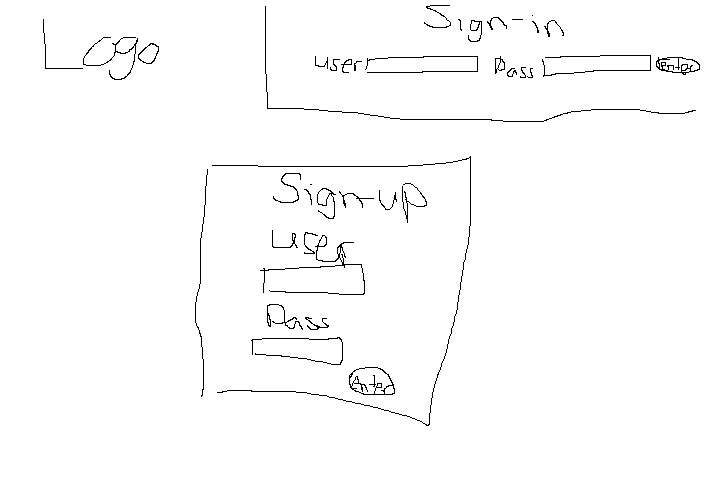 Logo
Sign-in
user Pass Enter
Sign-up
user
Pass
Enter